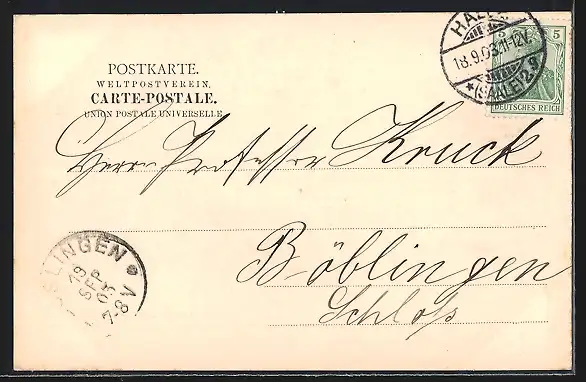 POSTKARTE.
WELTPOSTVEREIN.
CARTE-POSTALE.
UNION POSTALE UNIVERSELLE.
HALLE
18.9.03.11-12V.
*(SAALE)2.g
5 5
DEUTSCHES REICH
Herrn Professor Kruck
Böblingen
Schloß
BLINGEN
19
SEP
03
7-8 V